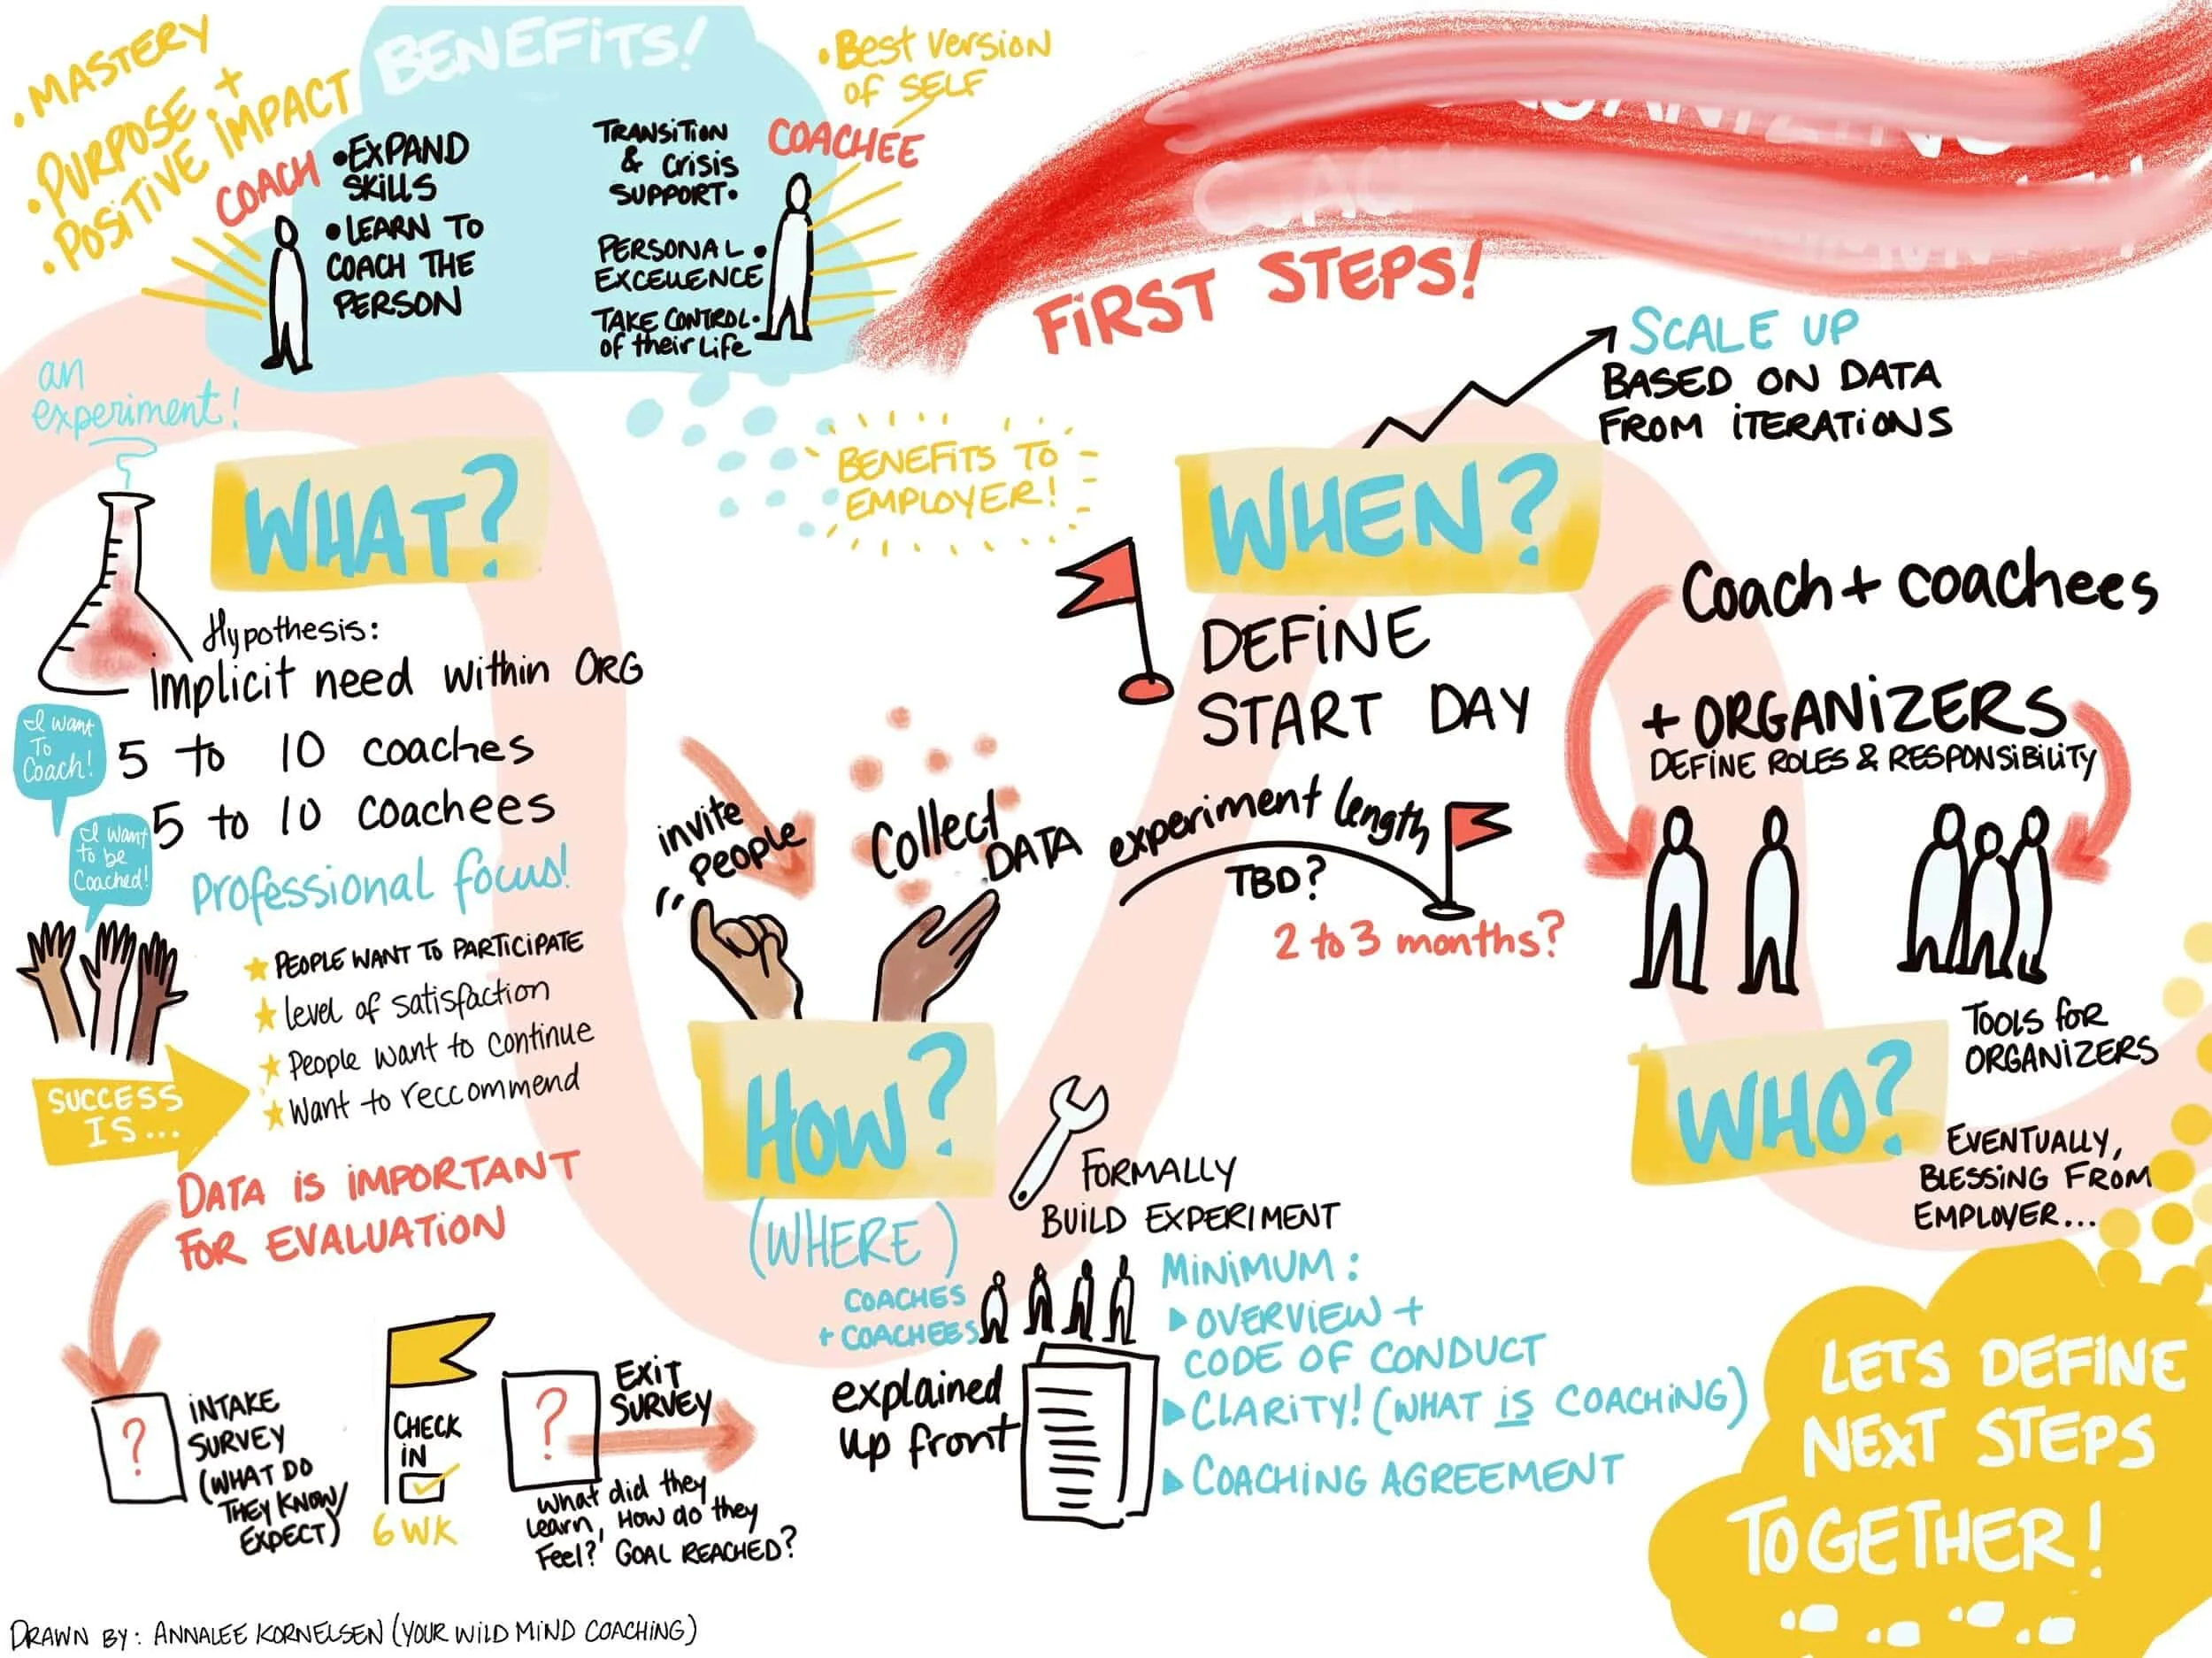 • MASTERY
• PURPOSE +
• POSITIVE IMPACT
BENEFITS!
• Best Version
of SELF
COACH
• EXPAND
SKILLS
• LEARN TO
COACH THE
PERSON
TRANSITION
& CRISIS
SUPPORT •
PERSONAL •
EXCELLENCE
TAKE CONTROL •
of their Life
COACHEE
FIRST STEPS!
an
experiment!
WHAT?
Hypothesis:
implicit need within ORG
I want
To
Coach!
5 to 10 coaches
I want
to be
Coached!
5 to 10 coachees
Professional focus!
PEOPLE WANT TO PARTICIPATE
level of satisfaction
People want to continue
Want to reccommend
SUCCESS
IS...
DATA IS IMPORTANT
FOR EVALUATION
?
INTAKE
SURVEY
(WHAT DO
THEY KNOW/
EXPECT)
CHECK
IN
6 WK
?
EXIT
SURVEY
What did they
Learn, How do they
Feel? GOAL REACHED?
BENEFITS TO
EMPLOYER!
invite
people
Collect
DATA
HOW?
(WHERE)
FORMALLY
BUILD EXPERIMENT
COACHES
+ COACHEES
explained
up front
MINIMUM:
OVERVIEW +
CODE OF CONDUCT
CLARITY! (WHAT IS COACHING)
COACHING AGREEMENT
SCALE UP
BASED ON DATA
FROM ITERATIONS
WHEN?
DEFINE
START DAY
experiment length
TBD?
2 to 3 months?
Coach + coachees
+ ORGANIZERS
DEFINE ROLES & RESPONSIBILITY
WHO?
TOOLS FOR
ORGANIZERS
EVENTUALLY,
BLESSING FROM
EMPLOYER...
LETS DEFINE
NEXT STEPS
TOGETHER!
DRAWN BY: ANNALEE KORNELSEN (YOUR WILD MIND COACHING)